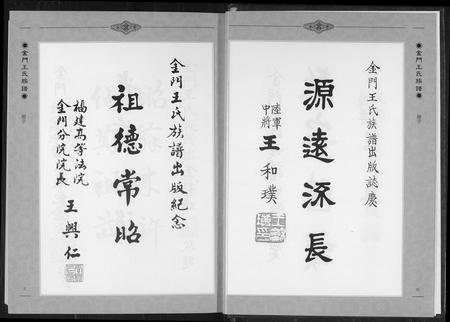 金門王氏族譜出版誌慶
源遠流長
陸軍
中將
王和璞
金門王氏族譜
金門王氏族譜出版紀念
祖德常昭
福建高等法院
金門分院院長
王興仁
金門王氏族譜